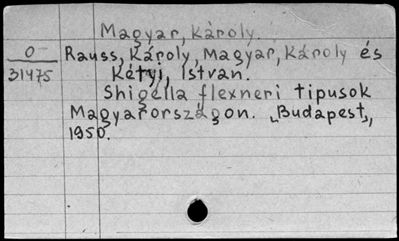 Magyar, Károly.
O
31475
Rauss, Károly, Magyar, Károly és
Kétyi, Istvan.
Shigella flexneri tipusok
Magyarországon. [Budapest],
1950.